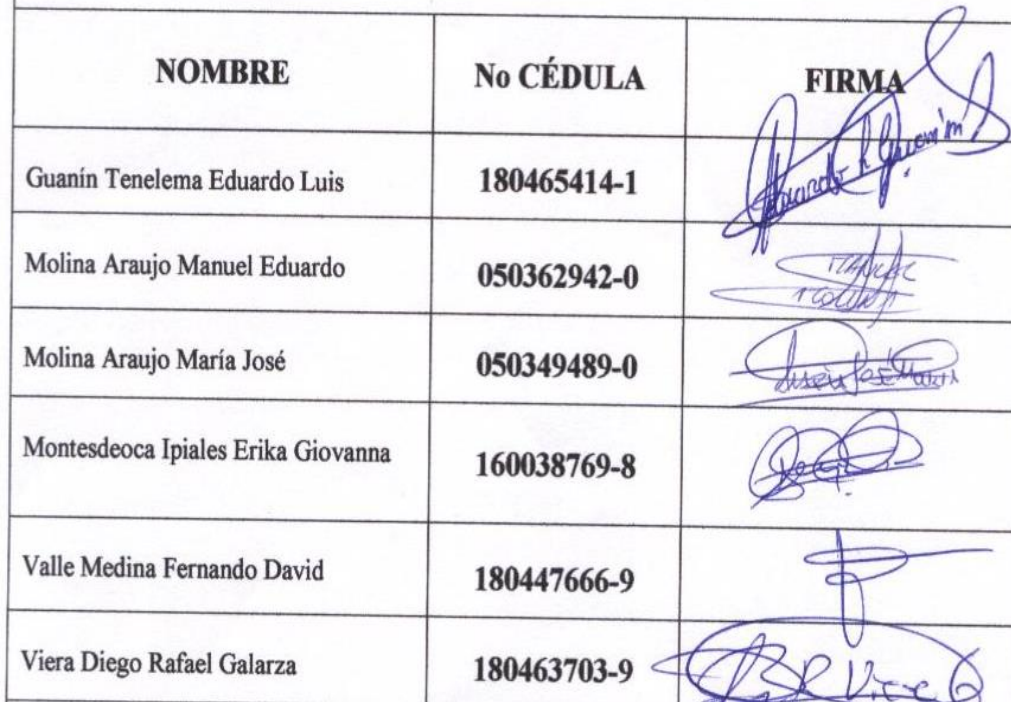 NOMBRE No CÉDULA FIRMA
Guanín Tenelema Eduardo Luis 180465414-1 Eduardo L Guanín
Molina Araujo Manuel Eduardo 050362942-0 Manuel Molina
Molina Araujo María José 050349489-0 María José
Montesdeoca Ipiales Erika Giovanna 160038769-8
Valle Medina Fernando David 180447666-9
Viera Diego Rafael Galarza 180463703-9